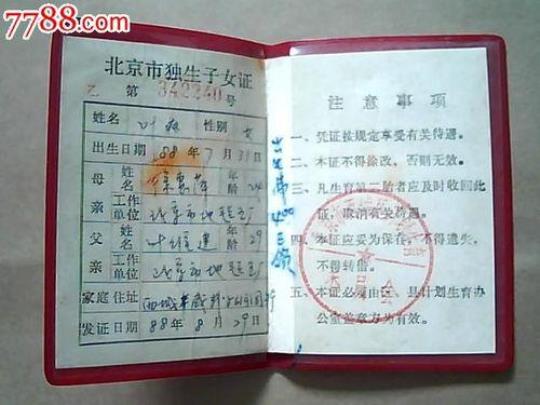 7788.com
北京市独生子女证
乙 第 342240 号
姓名 叶 性别 女
出生日期 88年7月31日
母亲 姓名 年龄 24
工作单位 北京市地毯五厂
父亲 姓名 叶 建 年龄 29
工作单位 北京市地毯五厂
家庭住址 西城
发证日期 88年8月29日
注意事项
一、凭证按规定享受有关待遇。
二、本证不得涂改，否则无效。
三、凡生育第二胎者应及时收回此
证，取消有关待遇。
四、本证应妥为保存，不得遗失，
不得转借。
五、本证必须由区、县计划生育办
公室盖章方为有效。